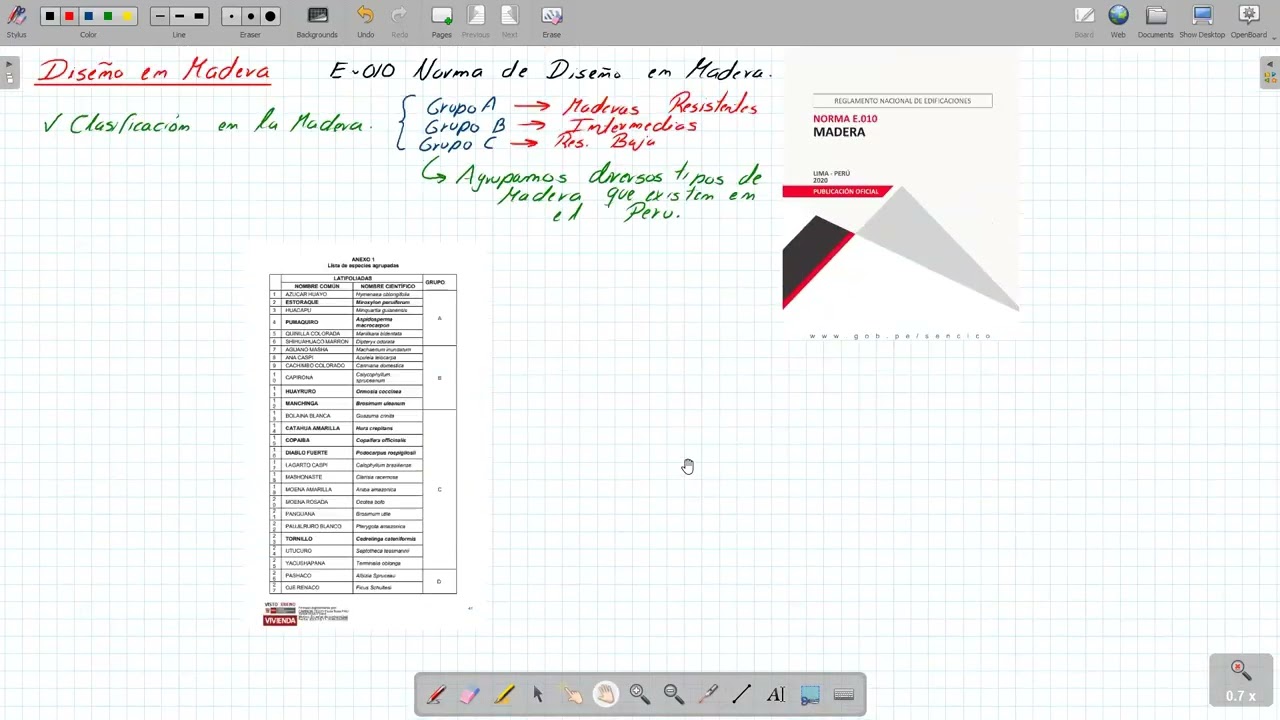 Stylus
Color
Line
Eraser
Backgrounds
Undo
Redo
Pages
Previous
Next
Erase
Board
Web
Documents
Show Desktop
OpenBoard
Diseño em Madera
E-010 Norma de Diseño em Madera.
√ Clasificación em la Madera.
Grupo A → Maderas Resistentes
Grupo B → Intermedias
Grupo C → Res. Baja
Agrupamos diversos tipos de
Madera que existem em
el Peru.
REGLAMENTO NACIONAL DE EDIFICACIONES
NORMA E.010
MADERA
LIMA - PERÚ
2020
PUBLICACIÓN OFICIAL
www.gob.pe/sencico
ANEXO 1
Lista de especies agrupadas
LATIFOLIADAS
NOMBRE COMÚN NOMBRE CIENTÍFICO GRUPO
1 AZUCAR HUAYO Hymenaea oblongifolia
2 ESTORAQUE Miroxylon peruiferum
3 HUACAPU Minquartia guianensis
4 PUMAQUIRO Aspidosperma macrocarpon
A
5 QUINILLA COLORADA Manilkara bidentata
6 SHIHUAHUACO MARRON Dipteryx odorata
7 AGUANO MASHA Machaerium inundatum
8 ANA CASPI Apuleia leiocarpa
9 CACHIMBO COLORADO Cariniana domestica
10 CAPIRONA Calycophyllum spruceanum
B
11 HUAYRURO Ormosia coccinea
12 MANCHINGA Brosimum uleanum
13 BOLAINA BLANCA Guazuma crinita
14 CATAHUA AMARILLA Hura crepitans
15 COPAIBA Copaifera officinalis
16 DIABLO FUERTE Podocarpus rospigliosii
17 LAGARTO CASPI Calophyllum brasiliense
18 MASHONASTE Clarisia racemosa
19 MOENA AMARILLA Aniba amazonica
C
20 MOENA ROSADA Ocotea bofo
21 PANGUANA Brosimum utile
22 PAUJILRURO BLANCO Pterygota amazonica
23 TORNILLO Cedrelinga cateniformis
24 UTUCURO Septotheca tessmannii
25 YACUSHAPANA Terminalia oblonga
26 PASHACO Albizia Spruceau
D
27 OJE RENACO Ficus Schultesi
VISTO BUENO
VIVIENDA
0.7 x